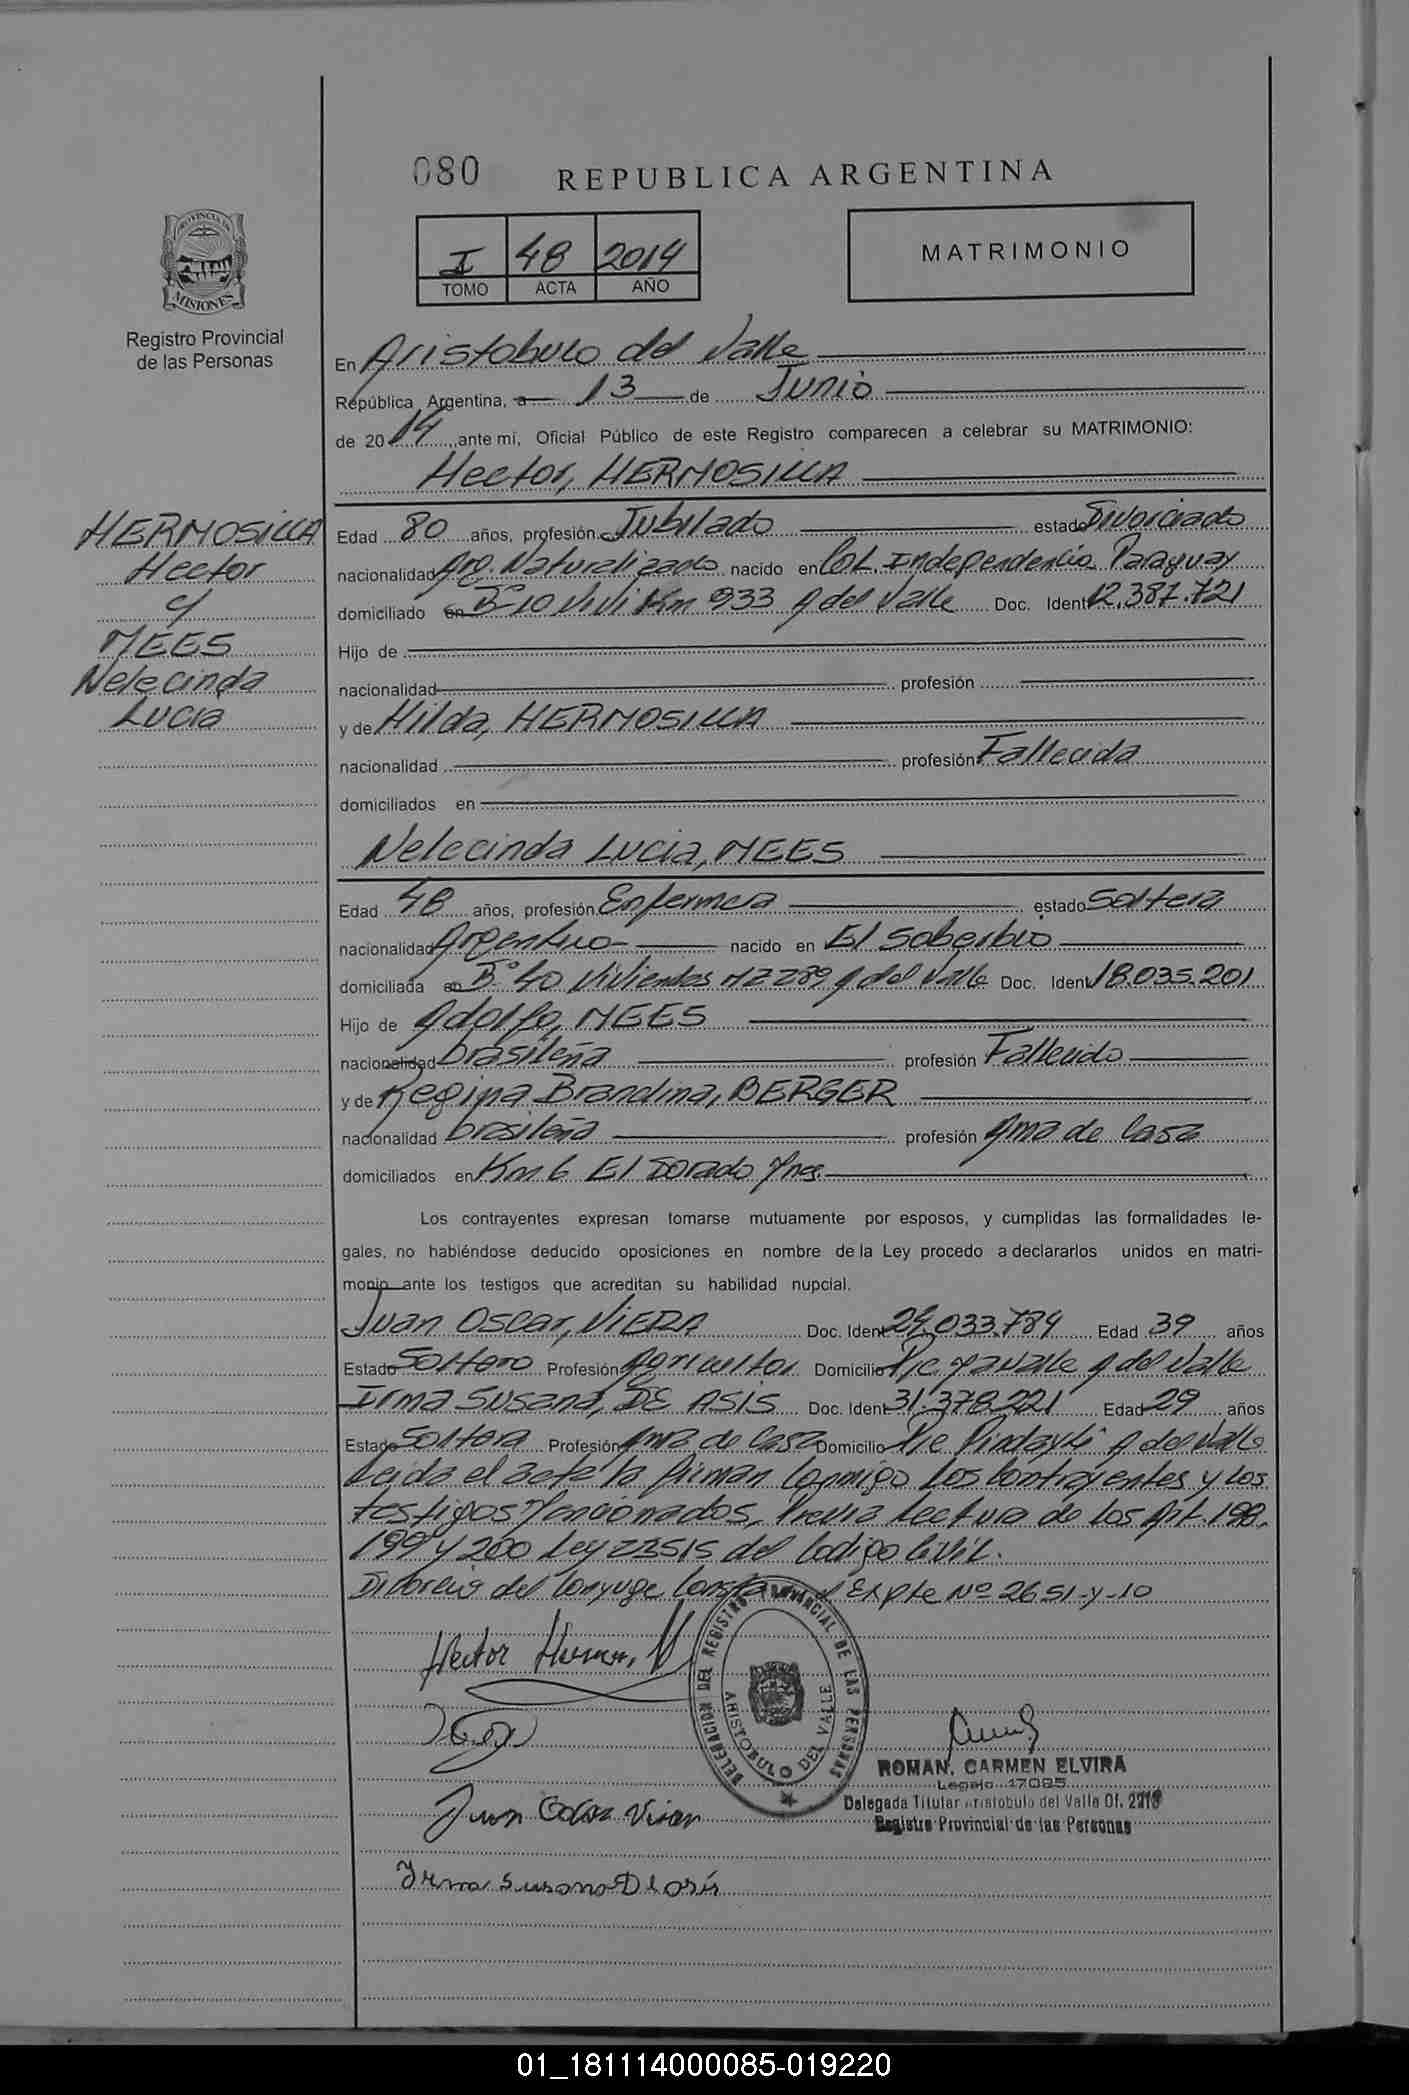 080 REPUBLICA ARGENTINA
PROVINCIA DE
MISIONES
Registro Provincial
de las Personas
I 48 2014
TOMO ACTA AÑO
MATRIMONIO
En Aristobulo del Valle
República Argentina, a 13 de Junio
de 2014, ante mi, Oficial Público de este Registro comparecen a celebrar su MATRIMONIO:
Hector, HERMOSILLA
HERMOSILLA
Hector
y
MEES
Nelecinda
Lucia
Edad 80 años, profesión Jubilado estado Divorciado
nacionalidad Arg. Naturalizado nacido en Col. Independencia Paraguay
domiciliado en Bº 10 Vivi Km 933 A del Valle Doc. Ident 12.387.721
Hijo de
nacionalidad profesión
y de Hilda, HERMOSILLA
nacionalidad profesión Fallecida
domiciliados en
Nelecinda Lucia, MEES
Edad 48 años, profesión Enfermera estado Soltera
nacionalidad Argentina nacido en El Soberbio
domiciliada en Bº 40 Viviendas MZ 289 A del Valle Doc. Ident 18.035.201
Hijo de Adolfo, MEES
nacionalidad brasileña profesión Fallecido
y de Regina Brandina, BERGER
nacionalidad brasileña profesión Ama de Casa
domiciliados en Km 6 El Dorado Mnes.
Los contrayentes expresan tomarse mutuamente por esposos, y cumplidas las formalidades le-
gales, no habiéndose deducido oposiciones en nombre de la Ley procedo a declararlos unidos en matri-
monio ante los testigos que acreditan su habilidad nupcial.
Juan Oscar, VIERA Doc. Ident 24.033.784 Edad 39 años
Estado Soltero Profesión Agricultor Domicilio Pje. A del Valle
Irma Susana, DE ASIS Doc. Ident 31.378.221 Edad 29 años
Estado Soltera Profesión Ama de Casa Domicilio Pje Pindayti A del Valle
Leida el acta la firman Conmigo los Contrayentes y los
testigos Mencionados, Previa Lectura de los Art. 198,
199 y 200 Ley 23515 del Codigo Civil.
Divorcio del Conyuge Consta el Expte Nº 2651-y-10
Hector
DELEGACION DEL REGISTRO PROVINCIAL DE LAS PERSONAS
ARISTOBULO DEL VALLE
ROMAN, CARMEN ELVIRA
Legajo 17085
Delegada Titular Aristobulo del Valle Of. 2218
Registro Provincial de las Personas
Juan Oscar Viera
Irma Susana De Asis
01_181114000085-019220